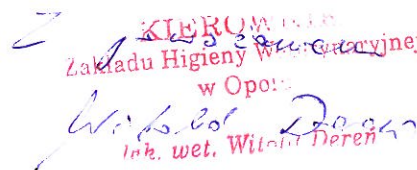 KIEROWNIK
Z poważaniem
Zakładu Higieny Weterynaryjnej
w Opolu
Witold Dereń
lek. wet. Witold Dereń